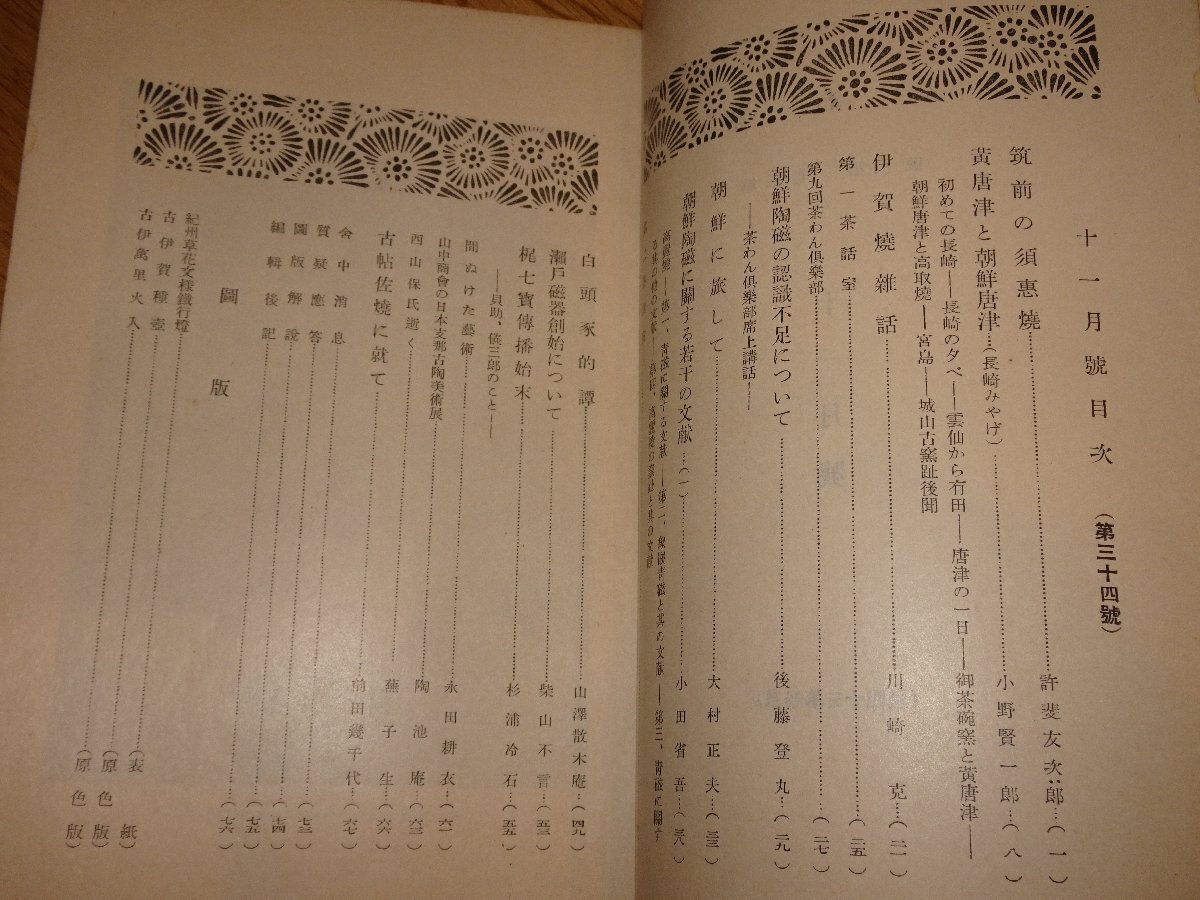 十一月號目次(第三十四號)
筑前の須惠燒……許斐友次郎…(一)
黃唐津と朝鮮唐津…(長崎みやげ)……小野賢一郎…(八)
初めての長崎――長崎の夕べ――雲仙から有田――唐津の一日――御茶碗窯と黃唐津――
朝鮮唐津と高取燒――宮島――城山古窯趾後聞
伊賀燒雜話……川崎克…(二一)
第一茶話室……(二五)
第九回茶わん俱樂部……(二七)
朝鮮陶磁の認識不足について……後藤登丸…(二九)
――茶わん俱樂部席上講話――
朝鮮に旅して……大村正夫…(三三)
朝鮮陶磁に關する若干の文献…(一)……小田省吾…(三八)
高麗燒――第一、靑磁に關する文献――第二、象嵌靑磁と其の文献――第三、靑磁に關す
白頭豕的譚……山澤散木庵…(四九)
瀨戶磁器創始について……柴山不言…(五三)
梶七寶傳播始末……杉浦冷石…(五五)
――貝助、儀三郎のこと――
間ぬけた藝術……永田耕衣…(六一)
山中商會の日本支那古陶美術展
西山保氏逝く……陶池庵…(六三)
古帖佐燒に就て……蕪子生…(六六)
舍中消息……前田幾千代…(六七)
質疑應答……(七三)
圖版解說……(七四)
編輯後記……(七五)
……(七六)
圖版
紀州草花文樣鐵行燈……(表紙)
古伊賀種壺……(原色版)
古伊萬里火入……(原色版)